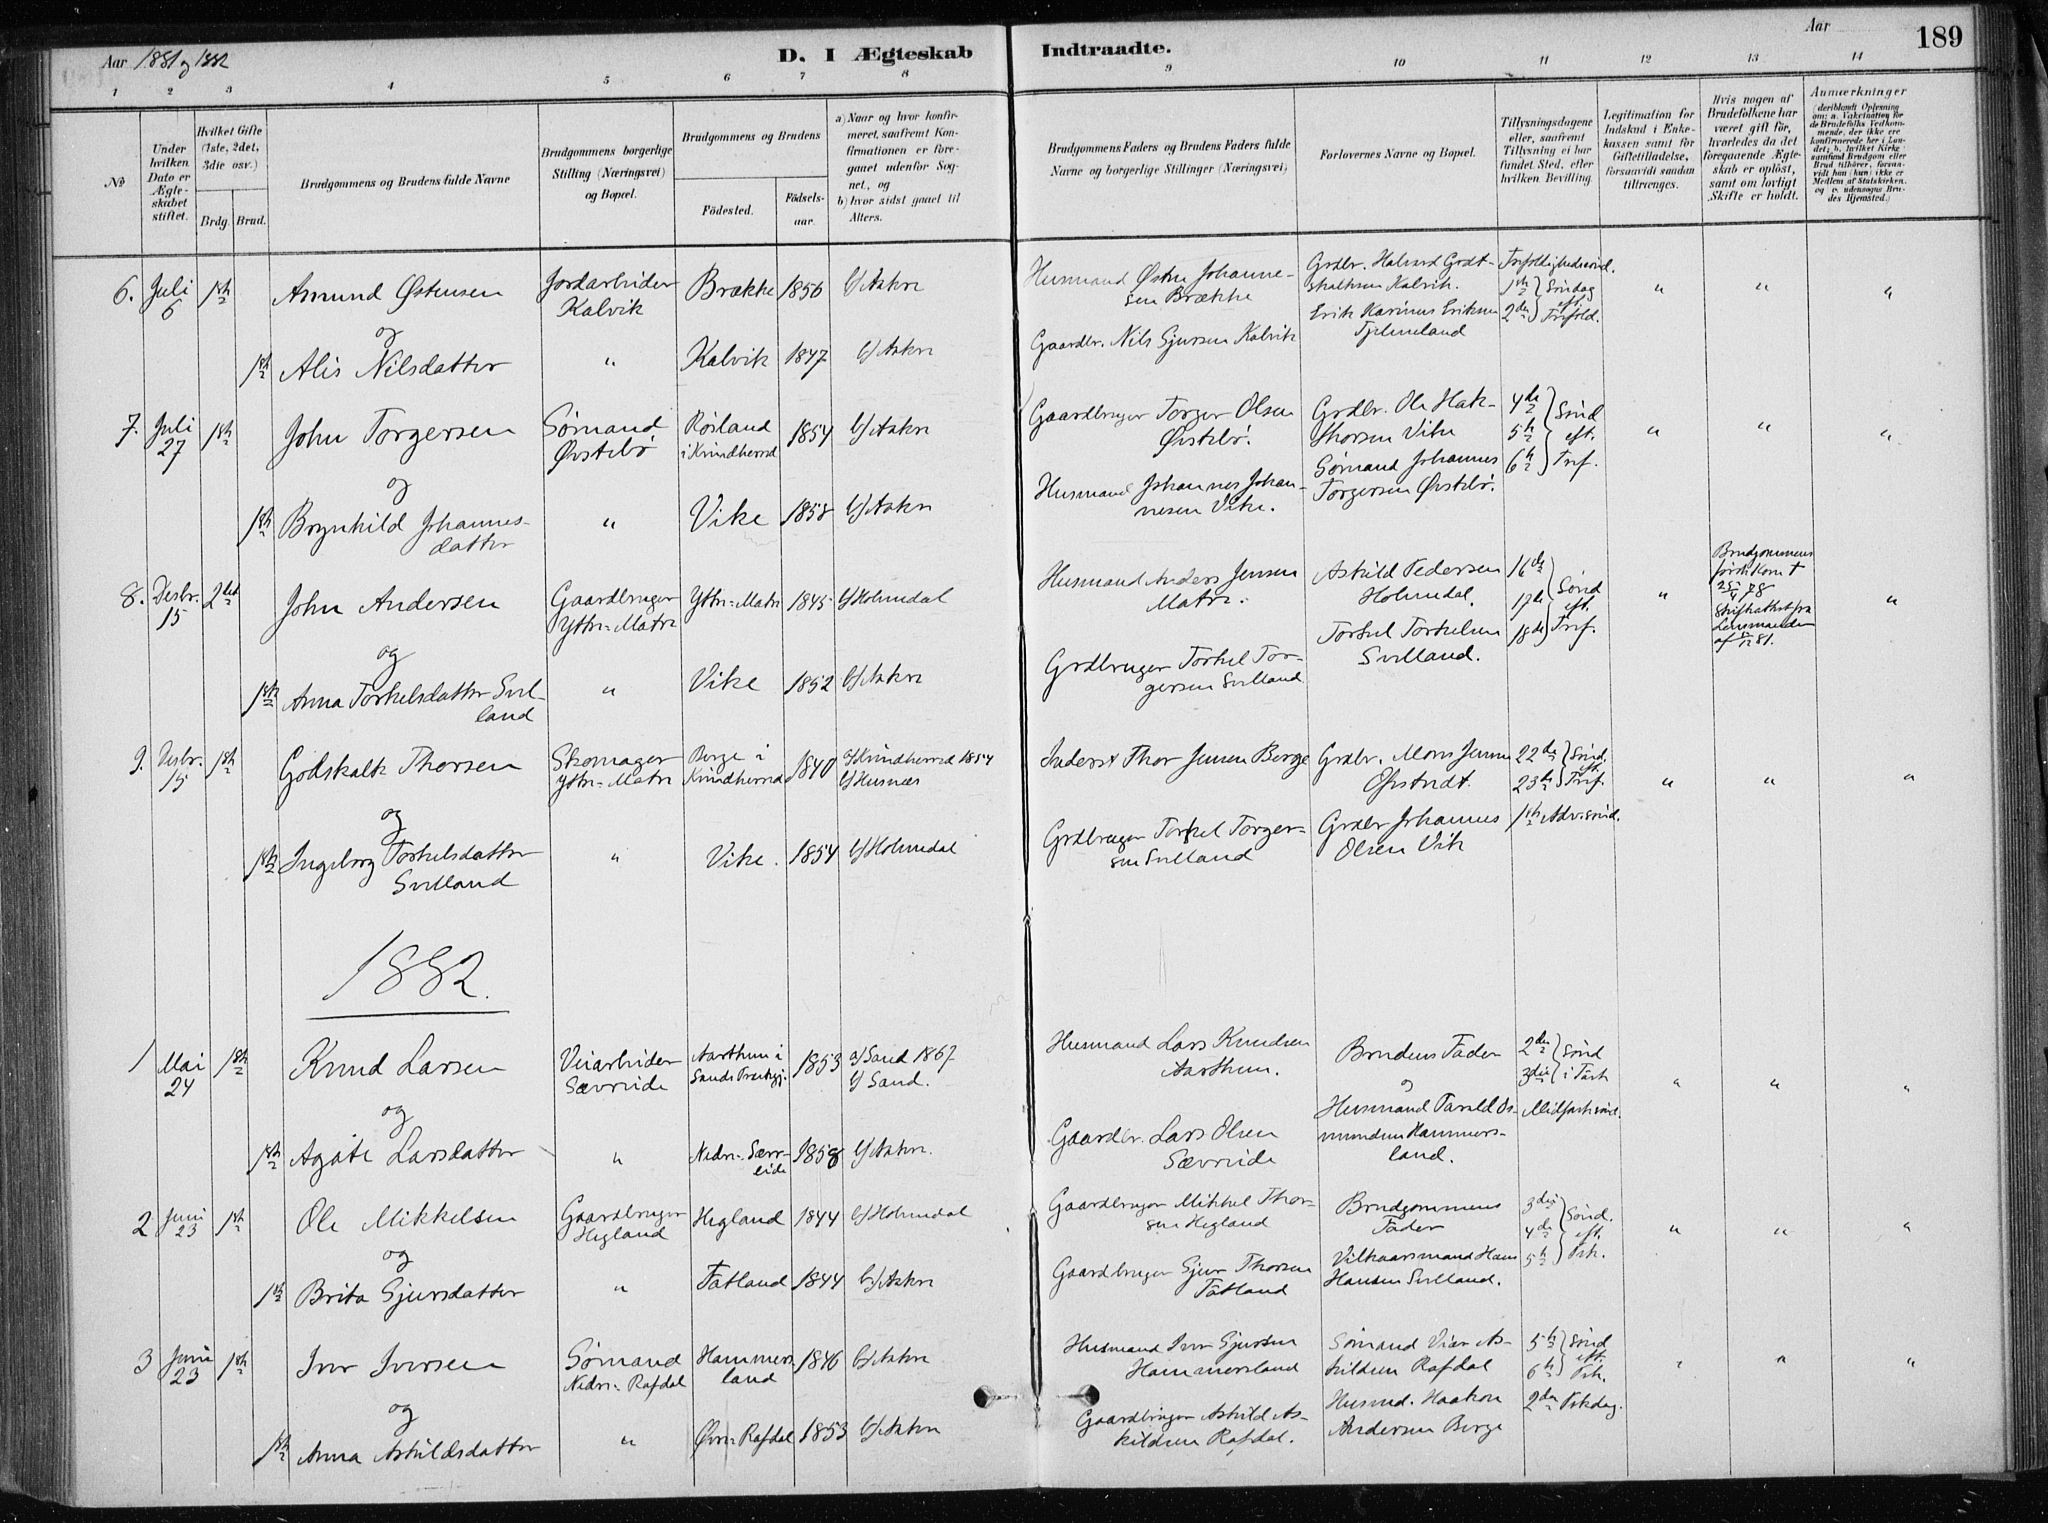 Aar 1881 og 1882
D. I Ægteskab Indtraadte.
Aar
189
1 2 3 4 5 6 7 8 9 10 11 12 13 14
No
Under hvilken Dato er Ægteskabet stiftet.
Hvilket Gifte (1ste, 2det, 3die osv.)
Brdg. Brud.
Brudgommens og Brudens fulde Navne
Brudgommens borgerlige Stilling (Næringsvei) og Bopæl.
Brudgommens og Brudens
Fødested.
Fødsels-aar.
a) Naar og hvor konfirmeret, saafremt Konfirmationen er foregaaet udenfor Sognet, og
b) hvor sidst gaaet til Alters.
Brudgommens Faders og Brudens Faders fulde Navne og borgerlige Stillinger (Næringsvei)
Forlovernes Navne og Bopæl.
Tillysningsdagene eller, saafremt Tillysning ei har fundet Sted, efter hvilken Bevilling.
Legitimation for Indskud i Enkekassen samt for Giftetilladelse, forsaavidt saadan tiltrænges.
Hvis nogen af Brudefolkene har været gift før, hvorledes da det foregaaende Ægteskab er opløst, samt om lovligt Skifte er holdt.
Anmærkninger (deriblandt Oplysning om: a. Vakcination for de Brudefolks Vedkommende, der ikke ere konfirmerede her i Landet; b. hvilket Kirkesamfund Brudgom eller Brud tilhører, forsaavidt han (hun) ikke er Medlem af Statskirken, og c. udensogns Brudes Hjemsted.)
6. Juli 6 1ste Amund Østensen Jordarbeider Kalvik Brække 1856 b/ Aakre Husmand Østen Johannesen Brække Grdbr. Halvard Godtskalksen Kalvik. Trefoldighedssønd. 1ste 2den Søndag eft. Trefold. " " "
og
1ste Alis Nilsdatter " Kalvik 1847 b/ Aakre Gaardbr. Nils Gjursen Kalvik Erik Karinus Eriksen Tjelmeland
7. Juli 27 1ste John Torgersen Sømand Østebø Røiland i Kvindherred 1854 b/ Aakre Gaardbruger Torger Olsen Østebø. Grdbr. Ole Hakthorsen Vike 4de 5te 6te Sønd eft. Tref. " " "
og
1ste Brynhild Johannesdatter " Vike 1858 b/ Aakre Husmand Johannes Johannesen Vike. Sømand Johannes Torgersen Østebø.
8. Desbr. 15 2det John Andersen Gaardbruger Ytre-Matre Ytre-Matre 1845 b/ Holmedal Husmand Anders Jensen Matre. Askild Pedersen Holmedal. 16de 17de 18de Sønd eft. Tref. " Brudgommens første Kone † 25/4 78 Skifteattest fra Lensmanden af 81. "
og
1ste Anna Torkelsdatter Svelland " Vike 1852 b/ Aakre Grdbruger Torkel Torgersen Svelland Torkel Torkelsen Svelland.
9. Desbr. 15 1ste Godskalk Thorsen Skomager Ytre-Matre Berge i Kvindherred 1840 a/ Kvindherred 1854 b/ Husnæs Inderst Thor Jensen Berge Grdbr. Mons Jensen 22de 23de Sønd. eft. Tref. " " "
og
1ste Ingeborg Torkelsdatter Svelland " Vike. 1854 b/ Holmedal Grdbruger Torkel Torgersen Svelland Grdbr Johannes Olsen Vik 1ste Adv. sønd.
1882.
1 Mai 24 1ste Knud Larsen Veiarbeider Sævreide Aarthun i Sands Præstegj. 1853 a/ Sand 1867 b/ Sand. Husmand Lars Knudsen Aarthun. Brudens Fader 2den 3die Sønd i Fast " " "
og
1ste Agate Larsdatter " Nedre-Sævreide 1858 b/ Aakre. Gaardbr. Lars Olsen Sævreide og Husmand Tarald Osmundsen Hammersland. Midfastesønd.
2 Juni 23 1ste Ole Mikkelsen Gaardbruger Hegland Hegland 1844 b/ Holmedal Gaardbruger Mikkel Thorsen Hegland Brudgommens Fader 3die 4de 5te Sønd. eft. Psk. " " "
og
1ste Brita Gjursdatter " Fatland 1844 b/ Aakre Gaardbruger Gjur Thorsen Fatland Vilkaarsmand Hans Hansen Svelland.
3 Juni 23 1ste Iver Iversen Sømand Nedre-Rafdal Hammersland 1846 b/ Aakre Husmand Iver Gjursen Hammersland Sømand Vier Askildsen Rafdal 5te 6te Sønd eft. Psk. " " "
og
1ste Anna Askildsdatter " Øvre-Rafdal 1853 b/ Aakre Gaardbruger Askild Askildsen Rafdal. Husmd. Haakon Andersen Berge 2den Pskdag.